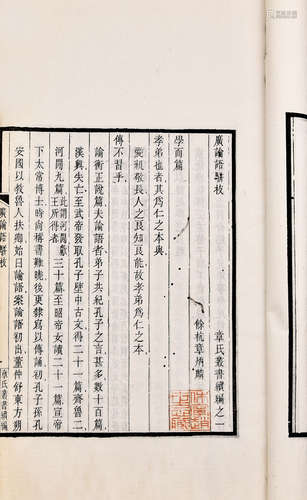 廣論語駢枝　章氏叢書續編之一
餘杭章炳麟
學而篇
孝弟也者其爲仁之本與
愛親敬長人之良知良能故孝弟爲仁之本
傳不習乎
論衡正說篇夫論語者弟子共紀孔子之言甚多數十百篇
漢興失亡至武帝發取孔子壁中古文得二十一篇齊魯二
河間九篇此謂河間獻王所得者三十篇至昭帝女讀二十一篇宣帝
下太常博士時尚稱書難曉後更隸寫以傳誦初孔子孫孔
安國以教魯人扶卿始曰論語案論語初出董仲舒東方朔
廣論語駢枝
章氏叢書續編